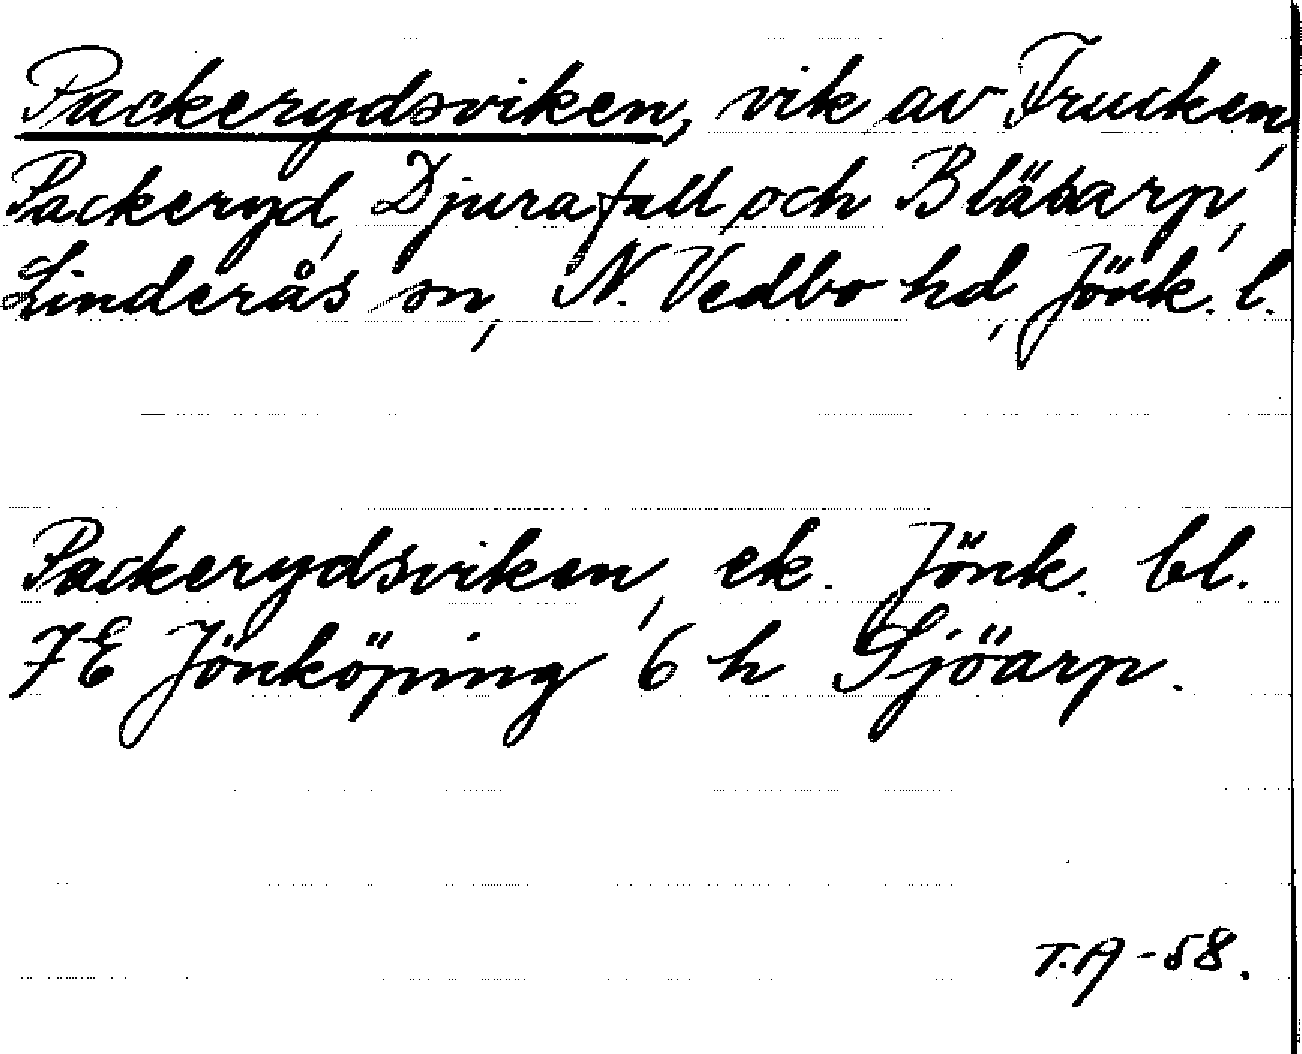 Packerydsviken, vik av Frucken,
Packeryd, Djurafall och Bläsarp,
Linderås sn, N. Vedbo hd, Jönk. l.
Packerydsviken, ek. Jönk. bl.
7E Jönköping 6 h Sjöarp.
T.A -58.